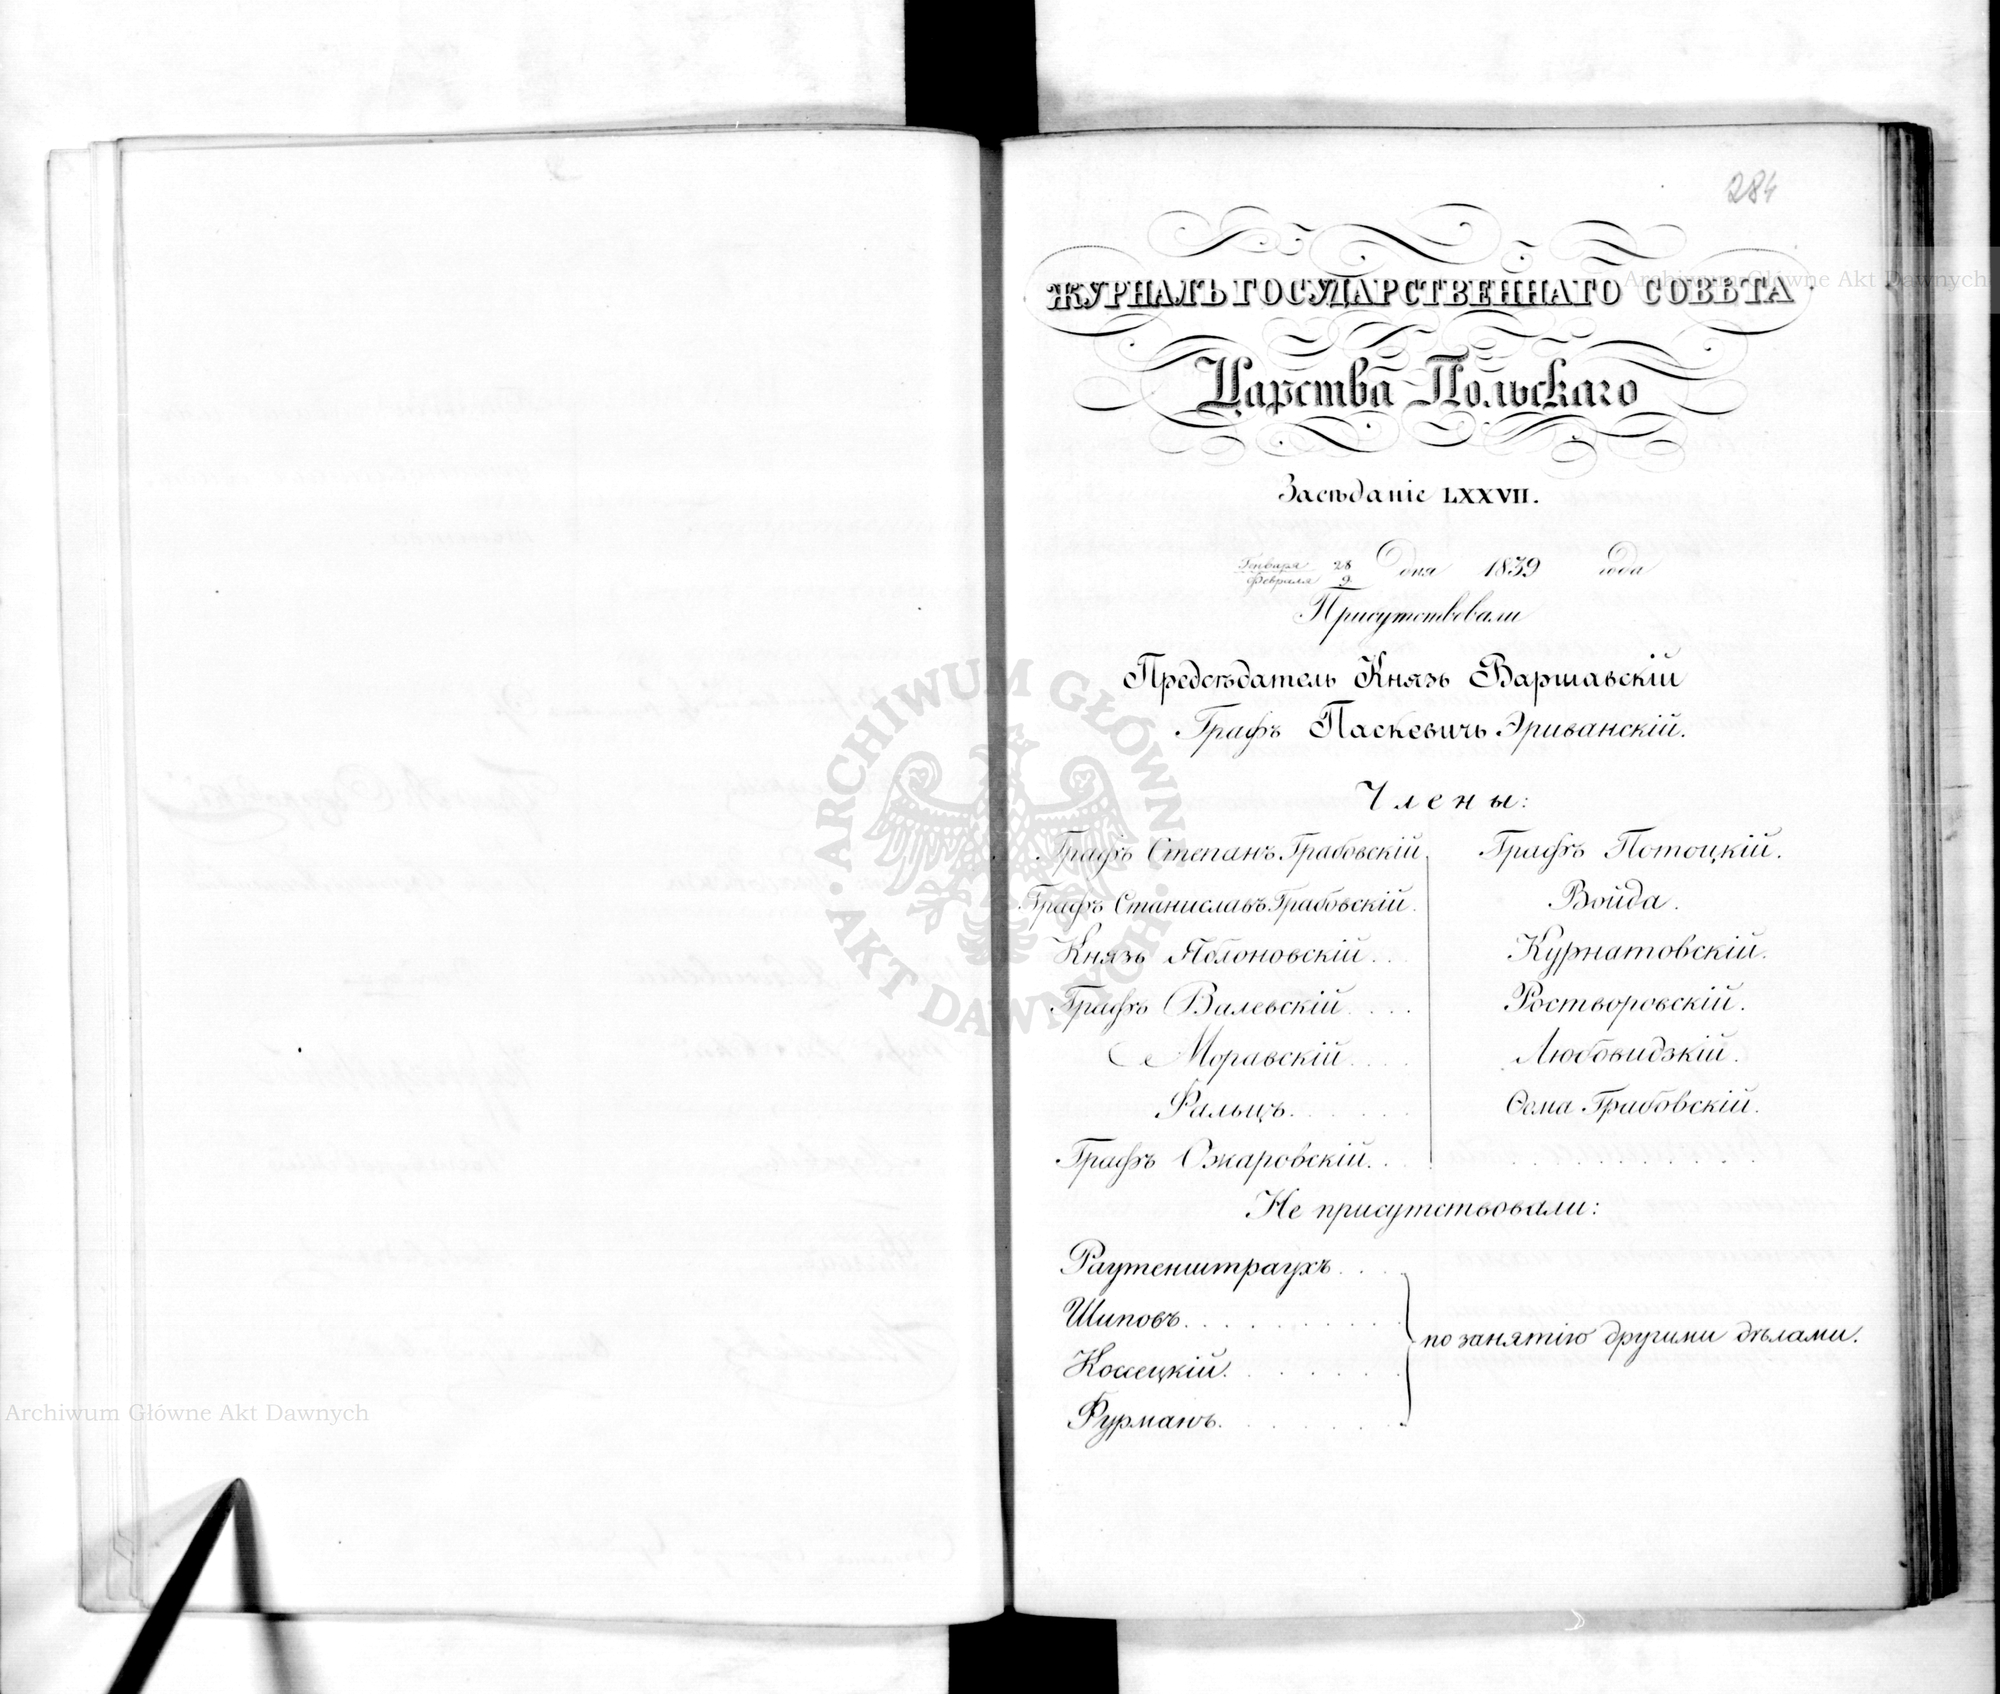 284
ЖУРНАЛЪ ГОСУДАРСТВЕННАГО СОВѢТА
Царства Польскаго
Засѣданіе LXXVII.
Генваря 28
Февраля 9 дня 1839 года
Присутствовали
Предсѣдатель Князь Варшавскій
Графъ Паскевичъ Эриванскій.
Члены:
Графъ Степанъ Грабовскій.
Графъ Станиславъ Грабовскій.
Князь Яблоновскій...
Графъ Валевскій....
Моравскій....
Фальцъ.......
Графъ Ожаровскій...
Графъ Потоцкій.
Войда.
Курнатовскій.
Ростворовскій.
Любовидзкій.
Ѳома Грабовскій.
Не присутствовали:
Раутенштраухъ....
Шиповъ..........
Коссецкій........
Фурманъ.........
по занятію другими дѣлами.
Archiwum Główne Akt Dawnych
ARCHIWUM GŁÓWNE
AKT DAWNYCH
Archiwum Główne Akt Dawnych